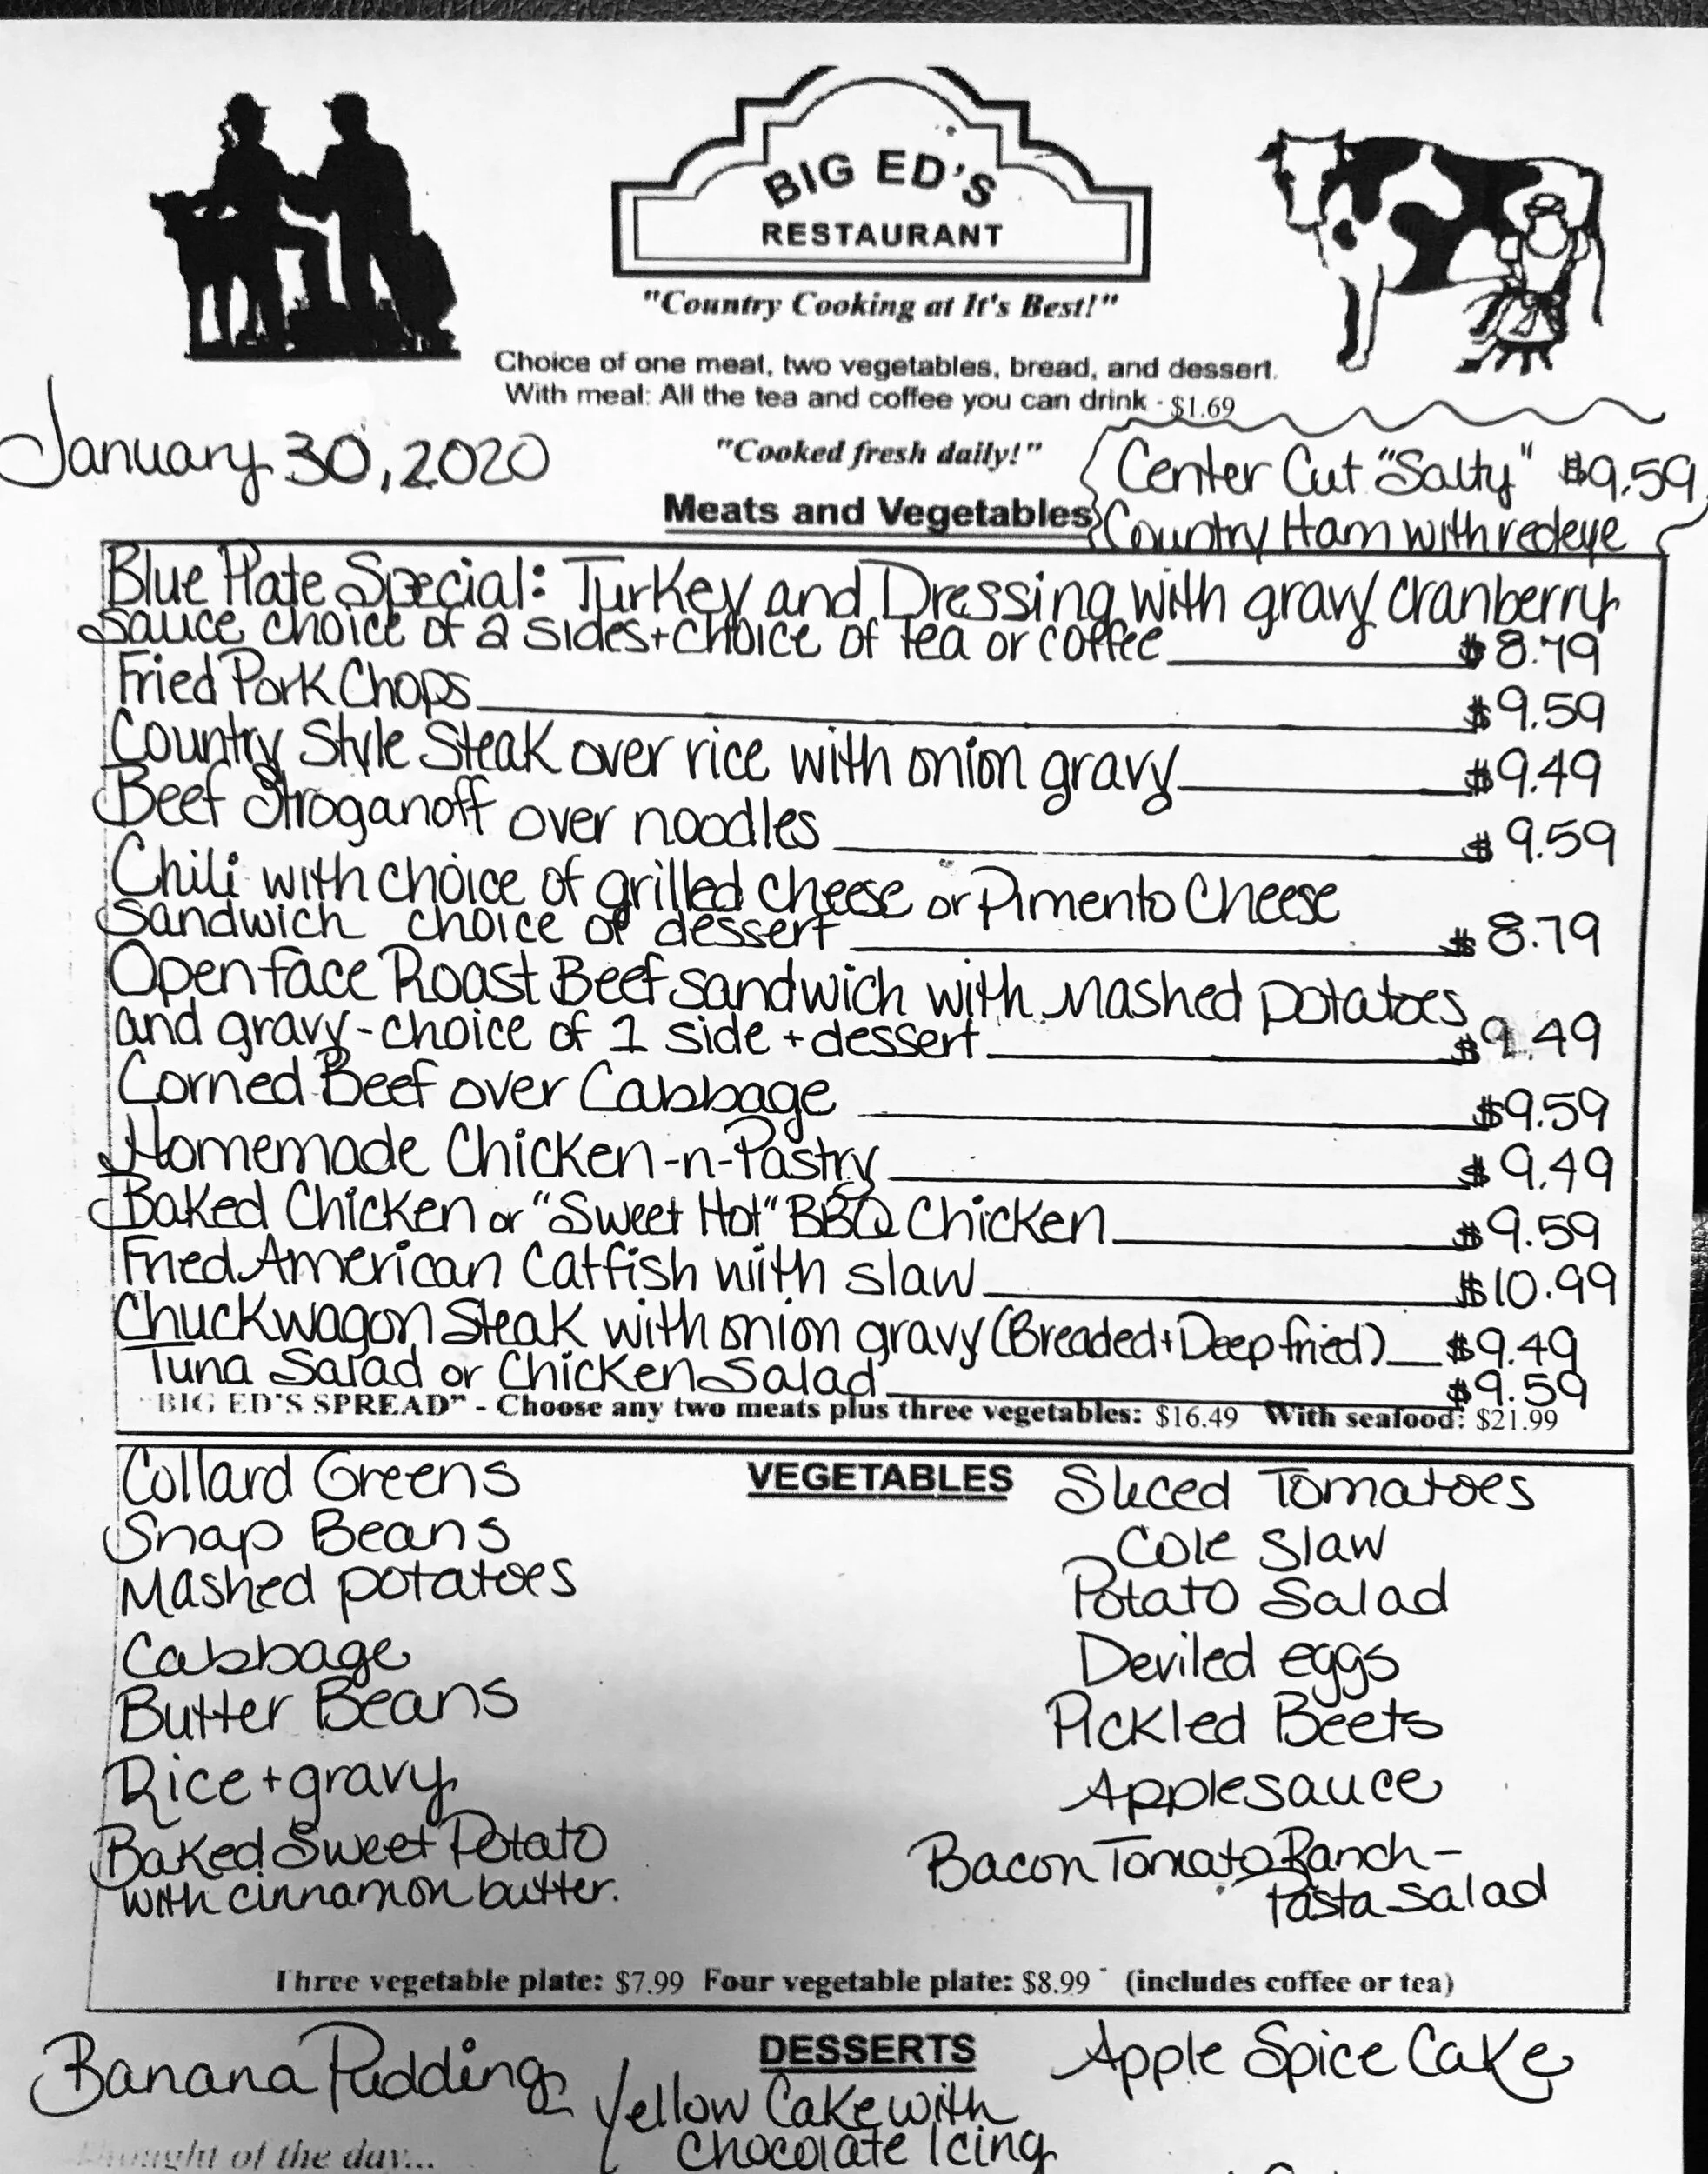 BIG ED'S
RESTAURANT
"Country Cooking at It's Best!"
Choice of one meat, two vegetables, bread, and dessert.
With meal: All the tea and coffee you can drink - $1.69
January 30, 2020
"Cooked fresh daily!"
Center Cut "Salty" $9.59
Country Ham with redeye
Meats and Vegetables
Blue Plate Special: Turkey and Dressing with gravy cranberry
sauce choice of 2 sides + choice of tea or coffee $8.79
Fried Pork Chops $9.59
Country Style Steak over rice with onion gravy $9.49
Beef Stroganoff over noodles $9.59
Chili with choice of grilled cheese or Pimento Cheese
Sandwich choice of dessert $8.79
Open face Roast Beef sandwich with mashed potatoes
and gravy - choice of 1 side + dessert $9.49
Corned Beef over Cabbage $9.59
Homemade Chicken-n-Pastry $9.49
Baked Chicken or "Sweet Hot" BBQ Chicken $9.59
Fried American Catfish with slaw $10.99
Chuckwagon Steak with onion gravy (Breaded + Deep fried) $9.49
Tuna Salad or Chicken Salad $9.59
"BIG ED'S SPREAD" - Choose any two meats plus three vegetables: $16.49 With seafood: $21.99
VEGETABLES
Collard Greens
Snap Beans
Mashed potatoes
Cabbage
Butter Beans
Rice + gravy
Baked Sweet Potato
with cinnamon butter.
Sliced Tomatoes
Cole Slaw
Potato Salad
Deviled eggs
Pickled Beets
Applesauce
Bacon Tomato Ranch -
Pasta Salad
Three vegetable plate: $7.99 Four vegetable plate: $8.99 (includes coffee or tea)
DESSERTS
Banana Pudding
Yellow Cake with
Chocolate Icing
Apple Spice Cake
Thought of the day...